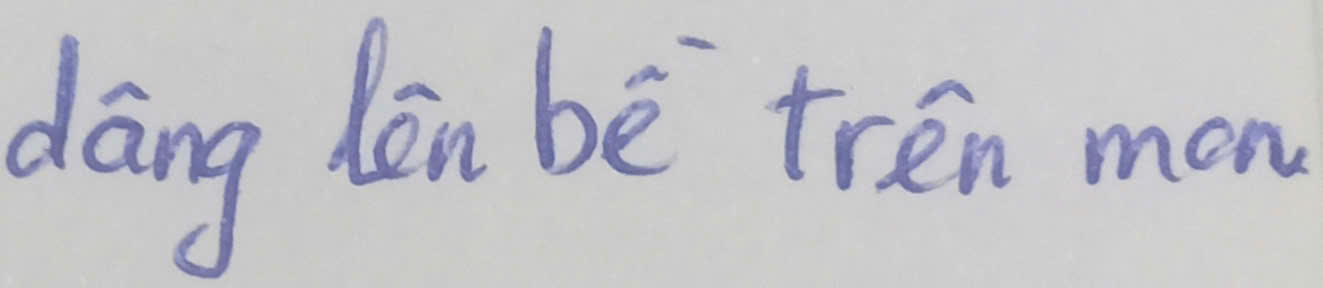 dâng lên bề trên mon.